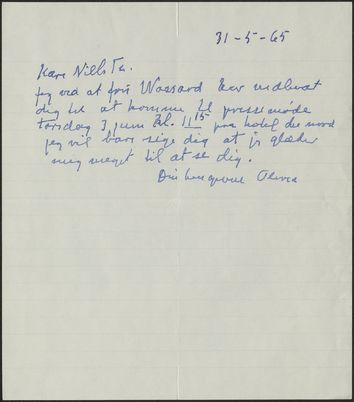 31-5-65
Kære Niels Th.
jeg ved at fru Wassard har indbudt
dig til at komme til pressemøde
torsdag 3 juni kl. 11 15 paa hotel du nord
jeg vil bare sige dig at jeg glæder
mig meget til at se dig.
Din hengivne